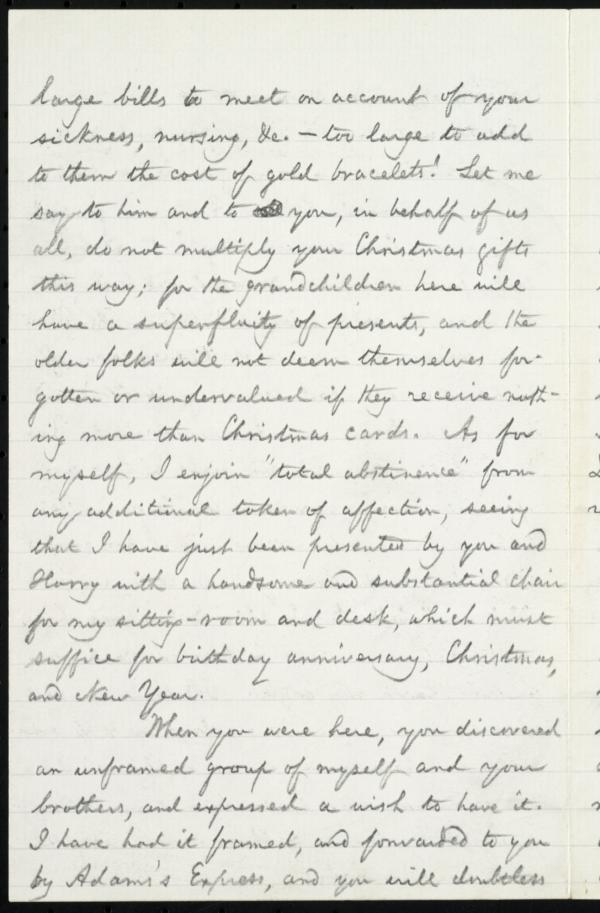 large bills to meet on account of your
sickness, nursing, &c. – too large to add
to them the cost of gold bracelets! Let me
say to him and to you, in behalf of us
all, do not multiply your Christmas gifts
this way; for the grandchildren here will
have a superfluity of presents, and the
older folks will not deem themselves for-
gotten or undervalued if they receive noth-
ing more than Christmas cards. As for
myself, I enjoin "total abstinence" from
any additional token of affection, seeing
that I have just been presented by you and
Harry with a handsome and substantial chair
for my sitting-room and desk, which must
suffice for birthday anniversary, Christmas,
and New Year.
When you were here, you discovered
an unframed group of myself and your
brothers, and expressed a wish to have it.
I have had it framed, and forwarded to you
by Adams's Express, and you will doubtless